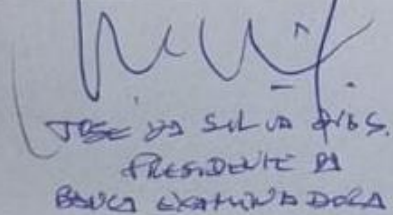 JOSE DA SILVA DIAS.
PRESIDENTE DA
BANCA EXAMINADORA